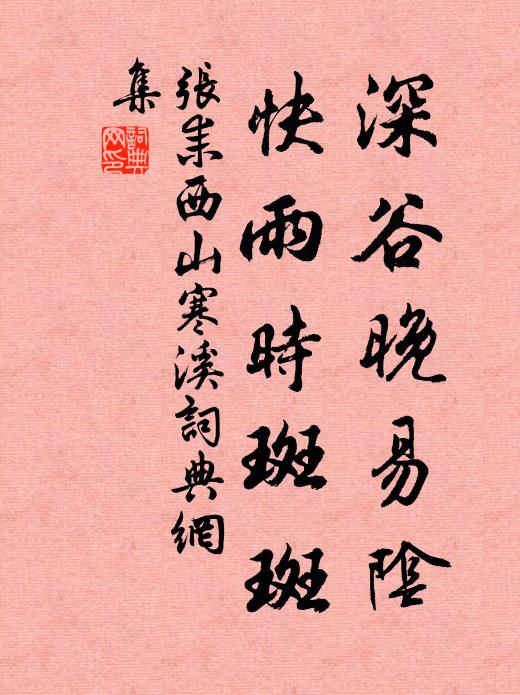 深谷晚易陰
快雨時斑斑
張耒西山寒溪詞典網
集
詞典網印